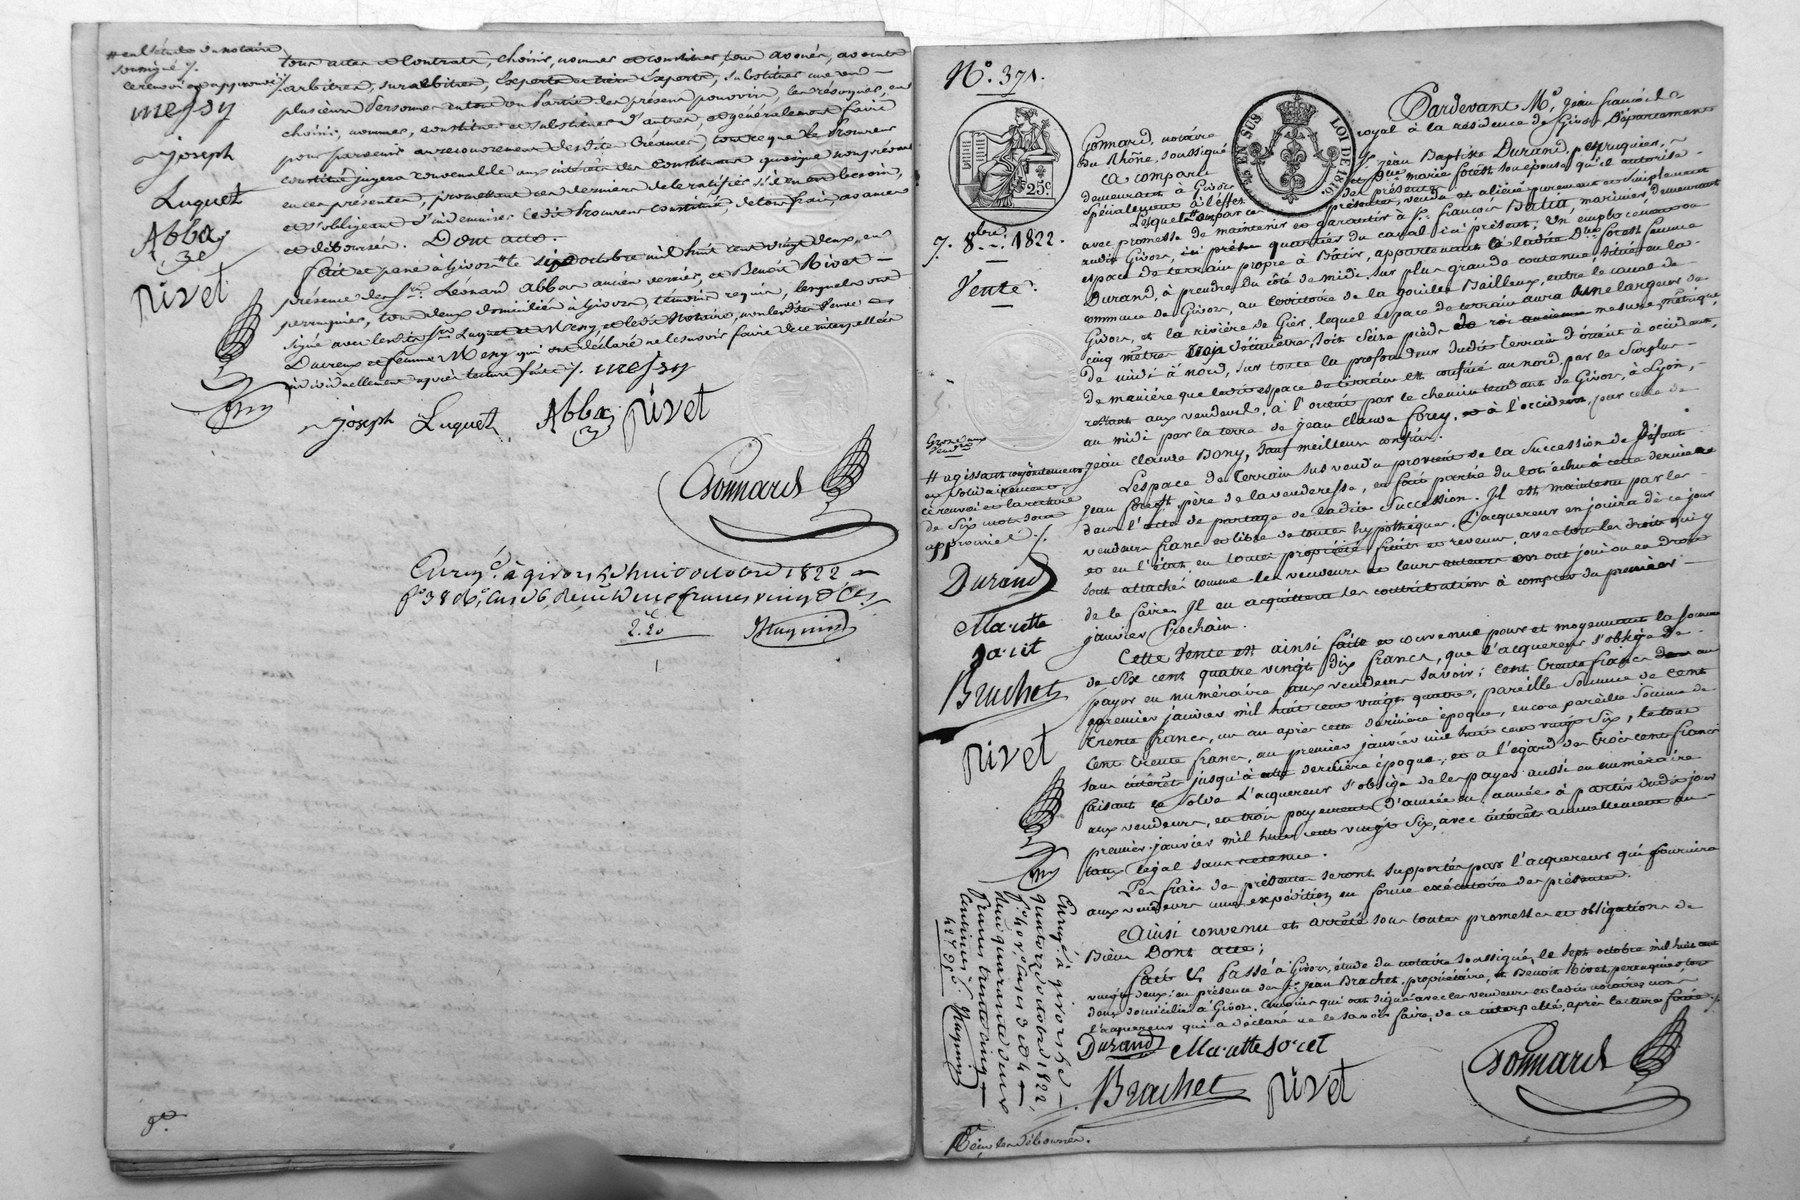 # en l'étude du notaire
soussigné /.
ce renvoi est approuvé /.
mesny
joseph
Luquet
Abba
rivet
tous actes et contrats, choisir, nommer et constituer tous avoués, avocats
arbitres, surarbitres, experts et tiers experts, substituer une ou
plusieurs personnes en tout ou partie des présens pouvoirs, les révoquer, en
choisir, nommer, constituer et substituer d'autres, et généralement faire
pour parvenir au recouvrement desdites créances, tout ce que le Procureur
constitué jugera convenable aux intérêts des Constituans quoique non prévu
en ces présentes, promettant ces derniers de le ratifier s'il en est besoin,
et s'obligeant d'indemniser ledit Procureur constitué, de tous frais, avances
et déboursés. Dont acte.
fait et passé à Givors # le sept octobre mil huit cent vingt deux, en
présence de Srs. Léonard Abba ancien verrier, et Benoit Rivet
perruquier, tous deux domiciliés à Givors, témoins requis, lesquels ont
signé avec lesdits Srs. Luquet et Mesny, et ledit Notaire, non lesdites Veuve
Duvreux et femme Mesny qui ont déclaré ne le savoir faire de ce interpellées
individuellement après lecture faite /. mesny
joseph Luquet Abba rivet
Gonnard
Enregé. à givors le huit octobre 1822
fo. 38 Ro. Case 6, Reçu deux francs vingt Ces.
2.20
No. 371.
25c
EN SUS
LOI DE 1816.
7. 8bre. 1822.
Vente.
Pardevant Me. Jean François
Gonnard, notaire royal à la résidence de Givors Département
du Rhône, soussigné
Ont comparu Sr. Jean Baptiste Durand, perruquier,
et Dme marie forest son épouse qu'il autorise
demeurant à Givors
spécialement à l'effet des présentes
Lesquels ont par ces présentes, vendu et aliéné purement et simplement
avec promesse de maintenir et garantir à Sr. françois Batia, marinier, demeurant
audit Givors, quartier du canal ici présent, Un emplacement ou
espace de terrain propre à Bâtir, appartenant à ladite Dme forest femme
Durand, à prendre du côté de midi sur plus grande contenue située en la
commune de Givors, au territoire de la gouille Bailleux, entre le canal de
Givors, et la rivière de Gier, lequel espace de terrain aura une largeur de
cinq mètres trois décimètres, soit seize pieds de roi ancienne mesure métrique
de midi à nord, sur toute la profondeur dudit terrain d'orient à occident,
de manière que ledit espace de terrain est confiné au nord par le surplus
restant aux vendeurs, à l'orient par le chemin tendant de Givors, à Lyon,
au midi par la terre de Jean Claude forey, et à l'occident, par celle de
Jean Claude Bony, sauf meilleurs confins.
L'espace de terrain sus vendu provient de la succession de défunt
Jean forest père de la venderesse, et fait partie du lot échu à cette dernière
dans l'acte de partage de ladite succession. Il est maintenu par les
vendeurs franc et libre de toutes hypothèques. L'acquéreur en jouira dès ce jour
et en l'état, en toute propriété fruits et revenus, avec tous les droits qui y
sont attachés comme les vendeurs et leurs auteurs en ont joui ou eu droit
de le faire. Il en acquittera les contributions à compter du premier
janvier Prochain.
Cette Vente est ainsi faite et convenue pour et moyennant la somme
de six cent quatre vingt dix francs, que l'acquéreur s'oblige de
payer en numéraire, aux vendeurs savoir; cent trente francs au
premier janvier mil huit cent vingt quatre, pareille somme de cent
trente francs, un an après cette dernière époque, encore pareille somme de
cent trente francs, au premier janvier mil huit cent vingt six, le tout
sans intérêt jusqu'à cette dernière époque, et à l'égard des trois cents francs
faisant le solde l'acquéreur s'oblige de les payer aussi en numéraire
aux vendeurs, en trois payemens d'année en année à partir dudit jour
premier janvier mil huit cent vingt six, avec intérêt annuellement au
taux légal sans retenue.
Les frais des présentes seront supportés par l'acquéreur qui fournira
aux vendeurs une expédition en forme exécutoire des présentes.
Ainsi convenu et arrêté sous toutes promesses et obligations de
Biens Dont acte;
fait & passé à Givors, étude du notaire soussigné, le sept octobre mil huit cent
vingt deux; en présence des Srs. Jean Brachet, propriétaire, et Benoit Rivet perruquier, tous
deux domiciliés à Givors, témoins qui ont signé avec les vendeurs et ledit notaire, non
l'acquéreur qui a déclaré ne le savoir faire, de ce interpellé, après lecture faite /.
Durand Mariette foret
Brachet rivet
Gonnard
# agissant conjointement
et solidairement
ce renvoi et la rature
de six mots sont
approuvés /.
Durand
Mariette
foret
Brachet
rivet
Enregé. à givors le
quatorze octobre 1822,
fo. 40 Vo. Cases 3 et 4
Reçu quarante deux
francs trente cinq
centimes /.
42f 35c